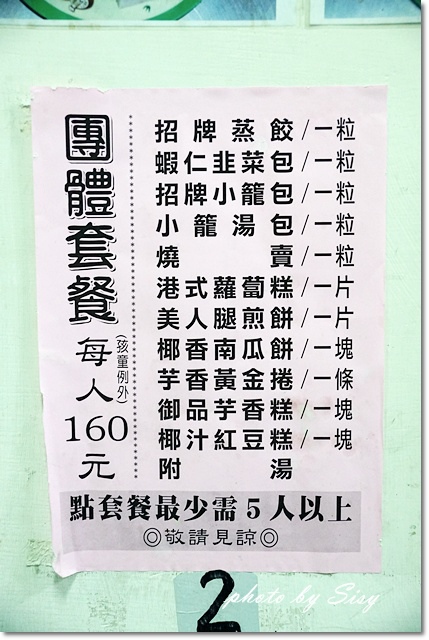 團體套餐
每人160元
(孩童例外)
招牌蒸餃/一粒
蝦仁韭菜包/一粒
招牌小籠包/一粒
小籠湯包/一粒
燒賣/一粒
港式蘿蔔糕/一片
美人腿煎餅/一片
椰香南瓜餅/一塊
芋香黃金捲/一條
御品芋香糕/一塊
椰汁紅豆糕/一塊
附湯
點套餐最少需5人以上
◎敬請見諒◎
2
photo by Sisy